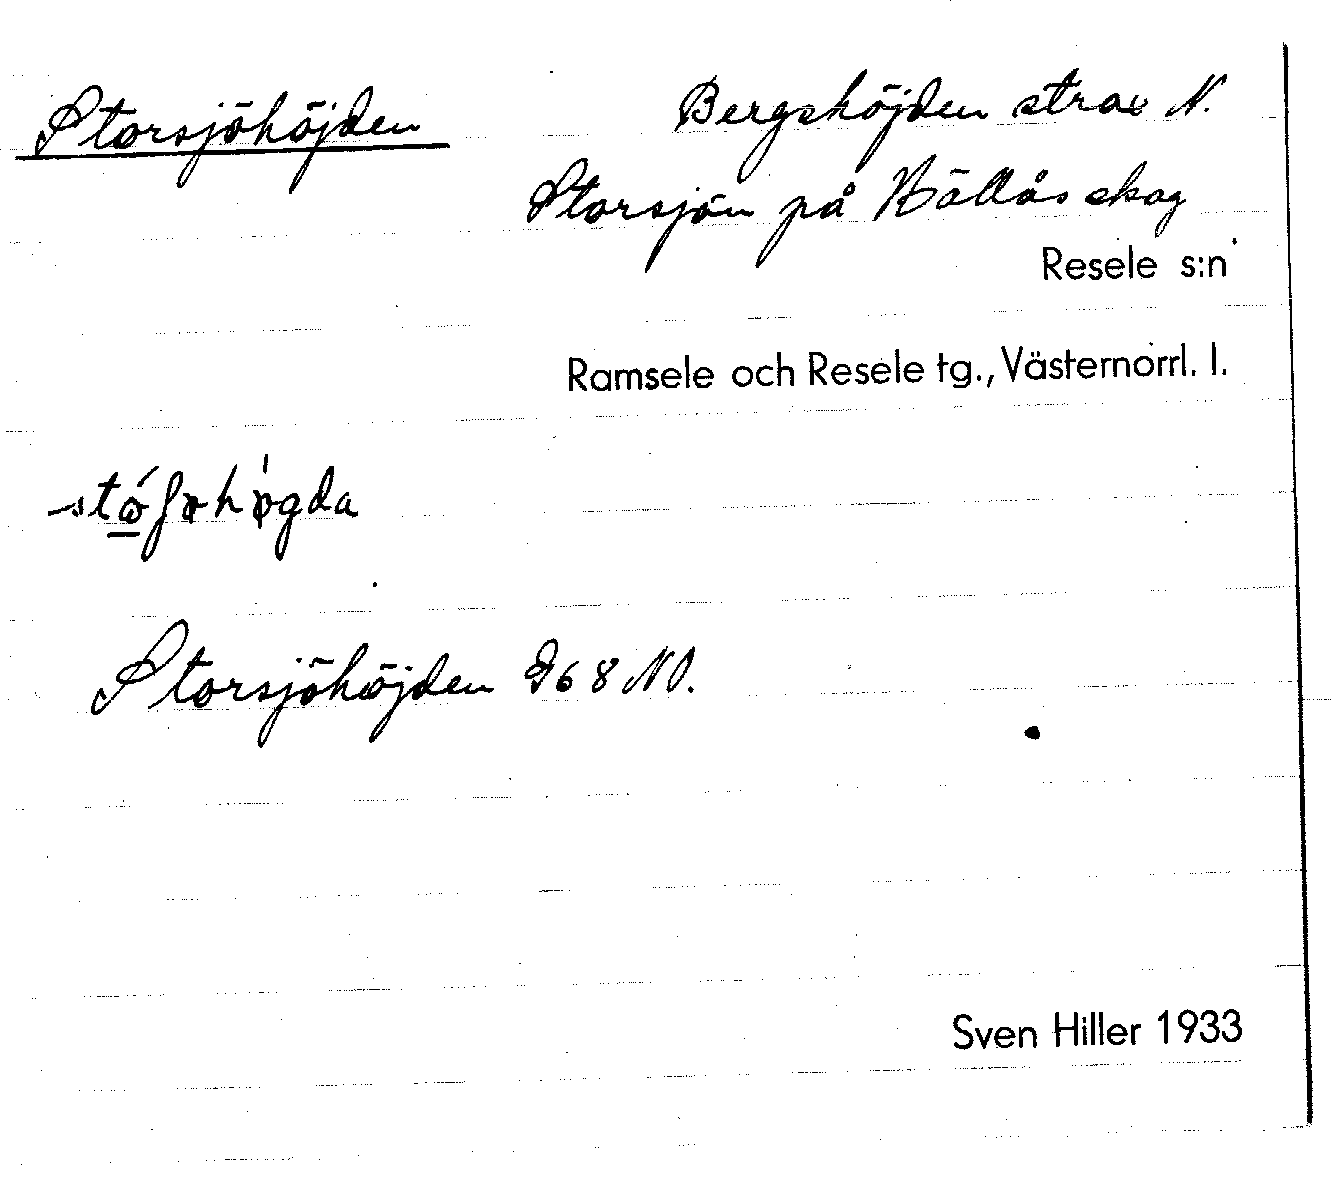 Storsjöhöjden
Bergshöjden strax N.
Storsjön på Hällås skog
Resele s:n
Ramsele och Resele tg., Västernorrl. l.
Storsjöhöjden 968 NO.
Sven Hiller 1933